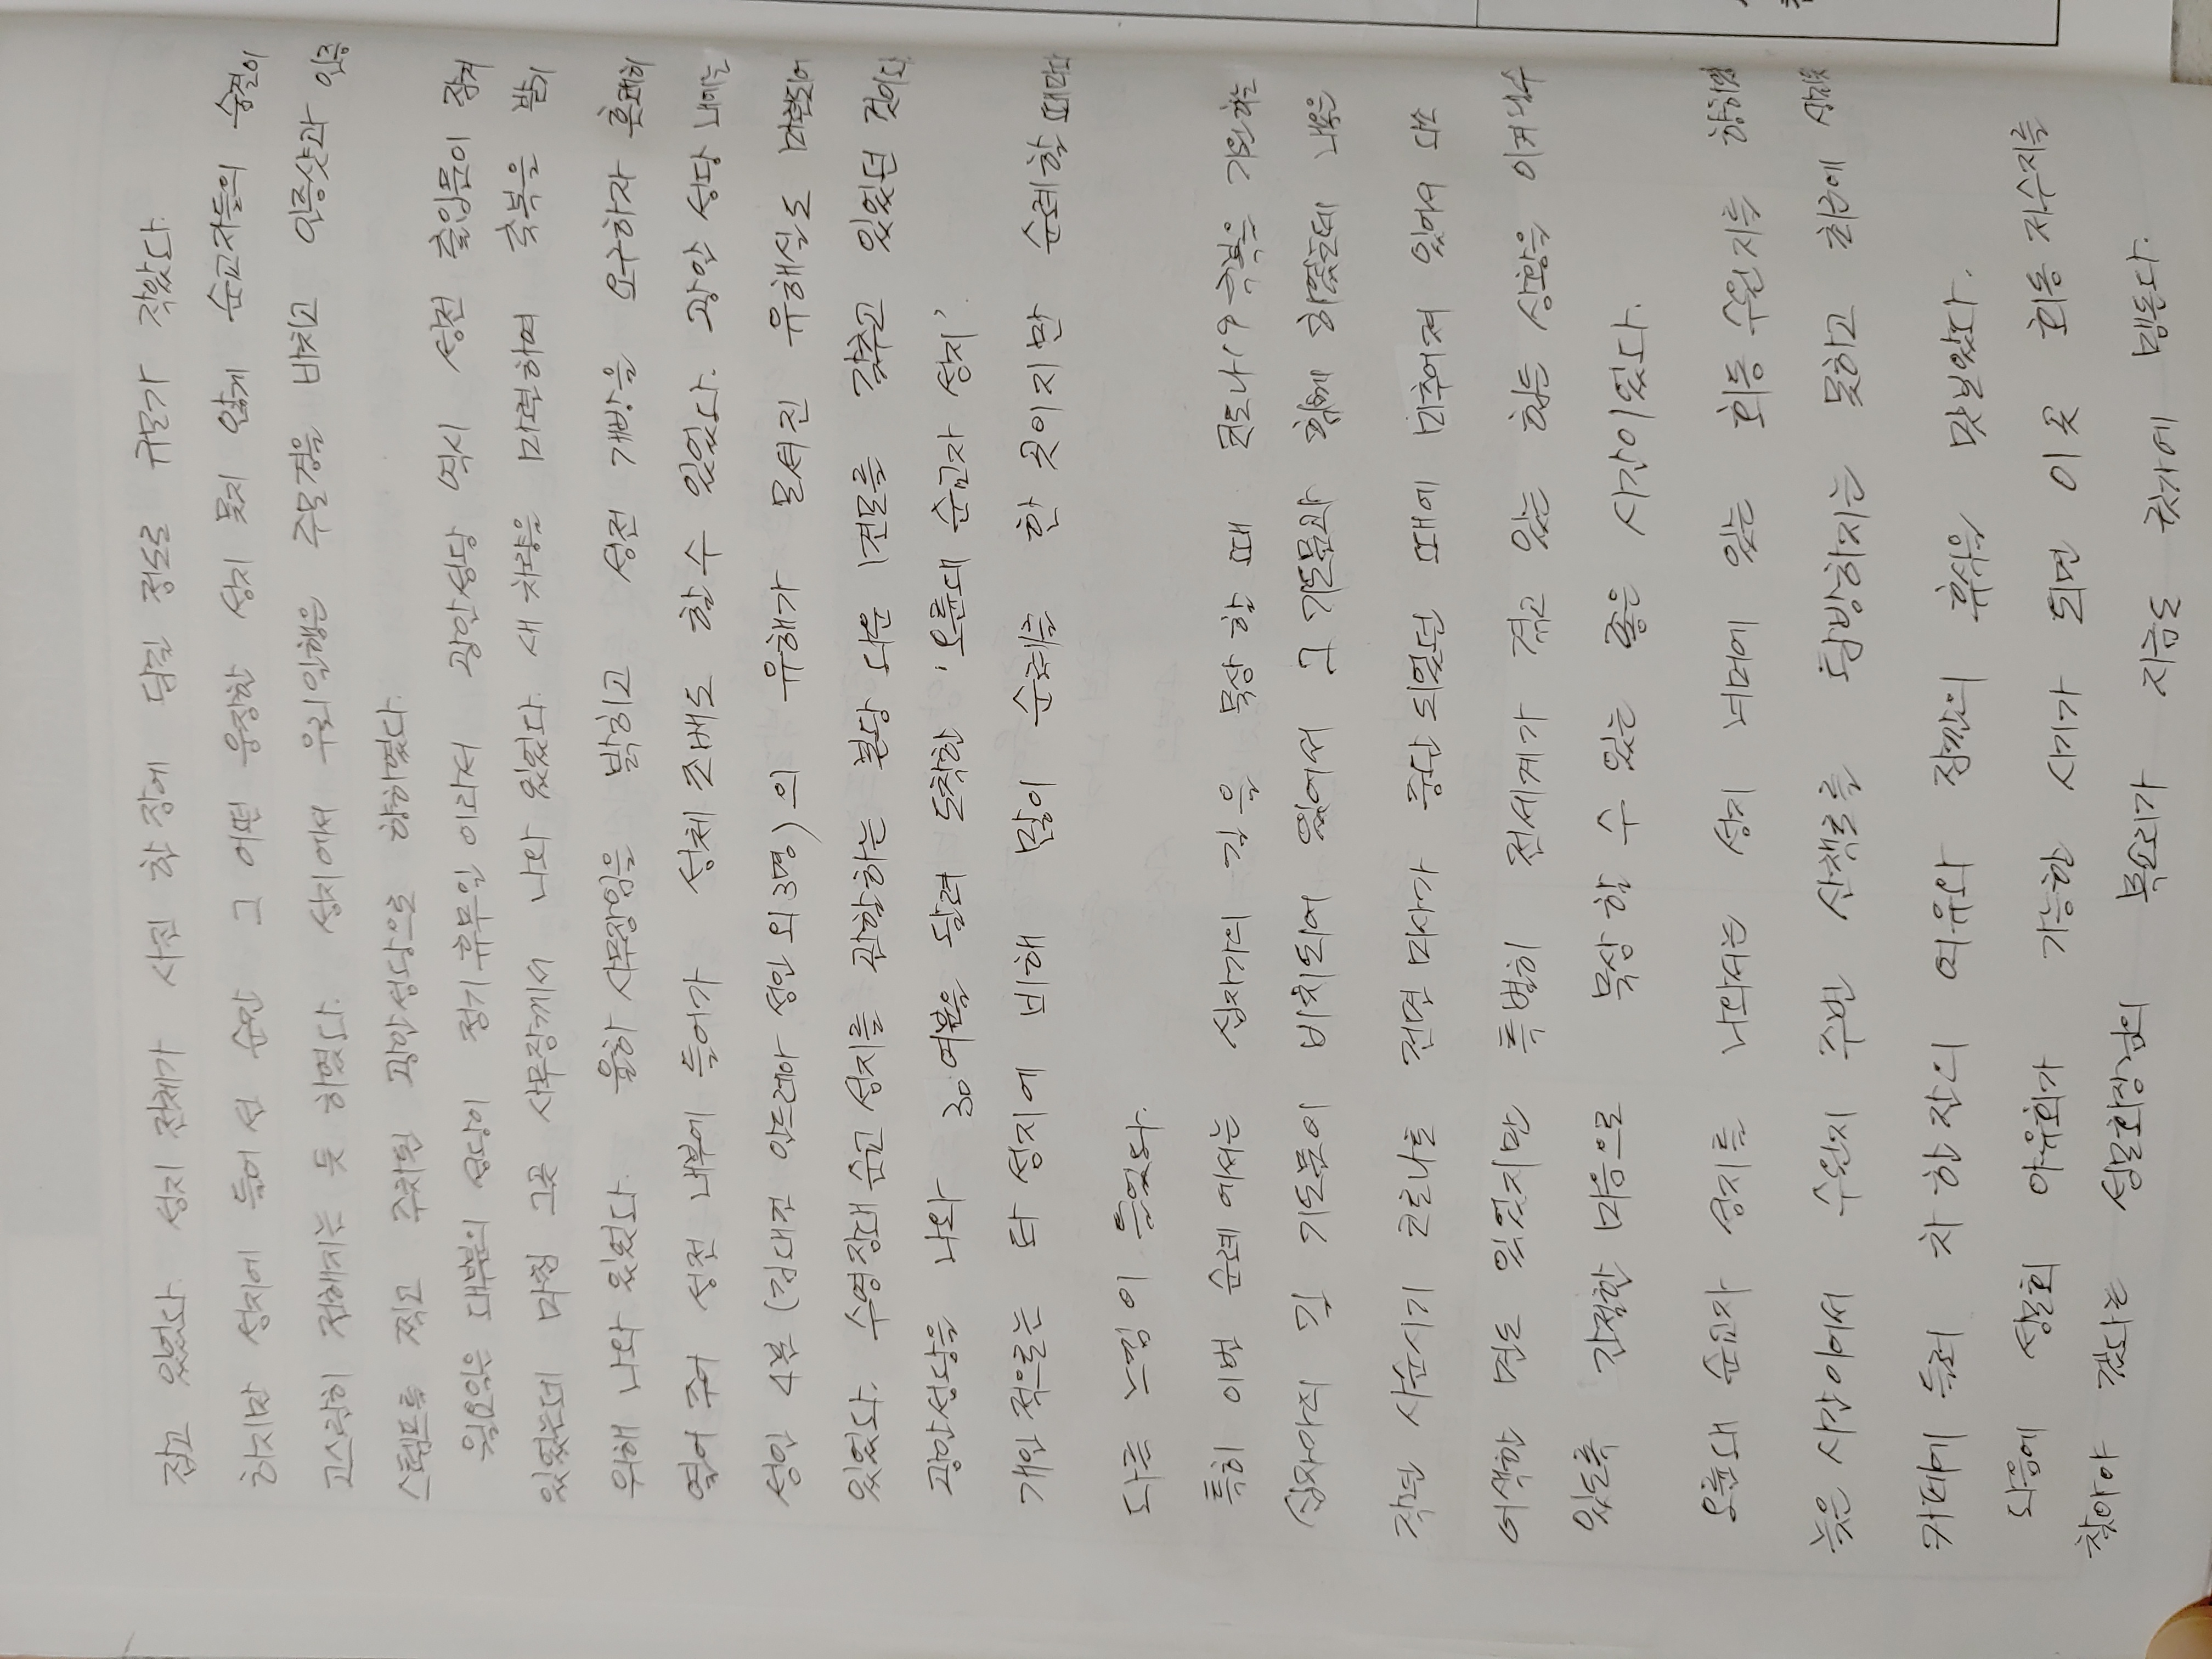 잡고 있었다. 성지 전체가 사진 한 장에 담길 정도로 규모가 작았다.
하지만 성지에 들어 선 순간 그 어떤 웅장한 성지 못지 않게 순교자들의 숨결이
고스란히 전해지는 듯 하였다. 성지에서 우리일행은 주모경을 바치고 인증샷과 인증
스템프를 찍고 주차된 광안성당으로 향하였다.
월요일은 대부분의 성당이 정기휴무일 이라서 광안성당 역시 성전 출입문이 잠겨
있었는데 마침 그곳 사무장께서 나와 있었다. 새 차량을 마련하여 축복을 받기
위해 나와 있었다. 율하 사무장임을 밝히고 성전 개방을 요구하자 흔쾌히
열어 주어 성전 내부에 들어가 성체 조배도 할 수 있었다. 광안 성당 내에는
성인 4분 (김대건 안드레아 성인 외 3명) 의 유해가 모셔진 유해실도 마련되어
있었다. 수영장대 순교 성지를 관할하는 본당 다운 면모를 갖추고 있었던 것이다.
광안성당을 나와 30여분을 달려 도착한 '오륜대 순교자 성지'.
개인 적으로는 타 성지에 비해 많이 순례를 한 곳이지만 순례할 때마다
다른 느낌 이 들었다.
특히 이번 순례 에서는 십자가의 길 을 묵상 할 때 코로나19 극복을 기원하는
십자가의 길 기도문이 비치되어 있어서 그 기도문과 함께 하였는데 내용은
작년 사순시기 코로나로 전면 미사가 중단 되었던 때에 맞추어져 있어서 다소
어색한 면도 있었지만 특별히 전세계가 겪고 있는 힘든 상황을 이겨낼수
있도록 간절한 마음으로 묵상 할 수 있는 좋은 시간이었다.
오륜대 순교자 성지를 나와서는 성지 너머에 있는 회동 수원지를 향하였
늦은 시간이어서 수원지 주변 산책로를 탐방하지는 못하고 최근에
카페에 들러 차 한잔의 여유와 잠깐의 휴식을 맛보았다.
다음에 성모회 야유회가 가능한 시기가 되면 이 곳 회동 저수지를
찾아야 겠다는 성모회장님의 목소리가 지금도 귓가에 맴돈다.